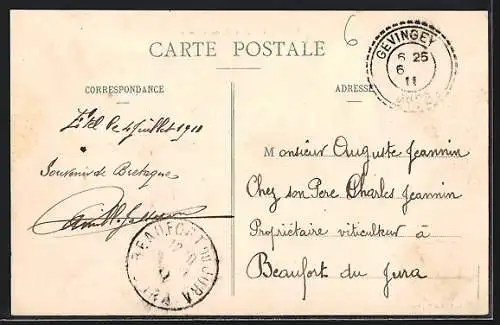 6
CARTE POSTALE
CORRESPONDANCE
ADRESSE
GEVINGEY
6 25
6
11
Etel le 4 juillet 1911
Souvenir de Bretagne
BEAUFORT DU JURA
Monsieur Auguste Jeannin
Chez son Pere Charles Jeannin
Propriétaire viticulteur à
Beaufort du Jura